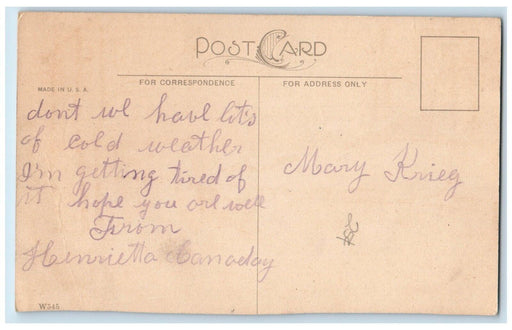 POST CARD
FOR CORRESPONDENCE
FOR ADDRESS ONLY
MADE IN U.S.A.
dont we have lots
of cold weather
I'm getting tired of
it hope you are well
From
Henrietta Canaday
Mary Krieg
W545